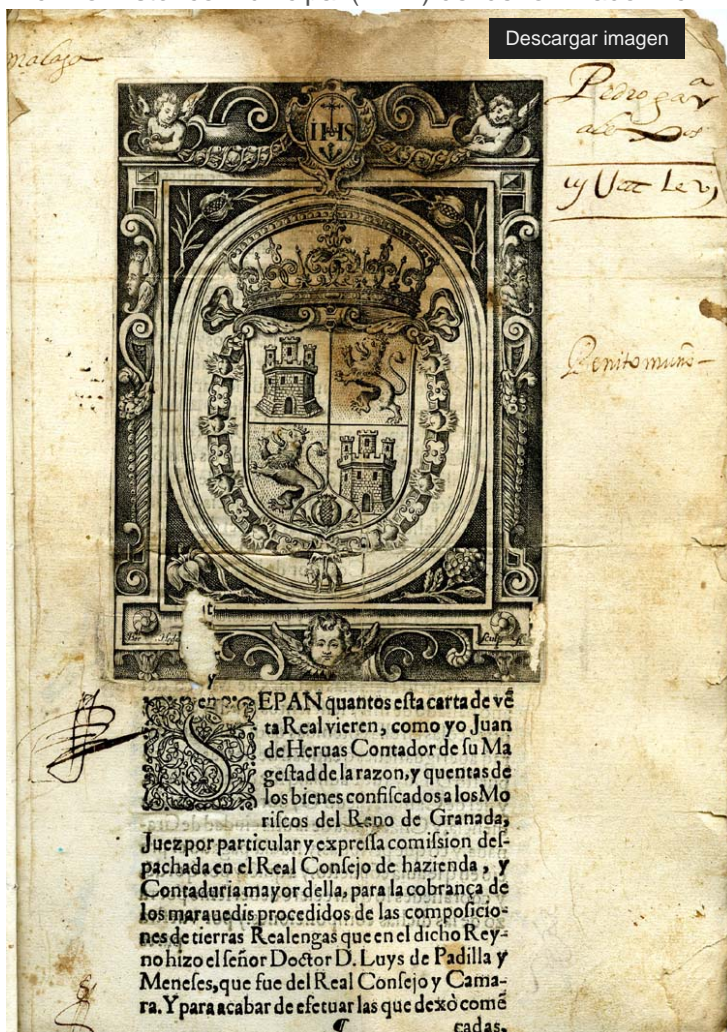 Descargar imagen
malaga
IHS
Pedro gar
Benito muño
SEPAN quantos esta carta de vē
ta Real vieren, como yo Juan
de Heruas Contador de su Ma
gestad de la razon, y quentas de
los bienes confiscados a los Mo
riscos del Reno de Granada,
Juez por particular y expressa comission des-
pachada en el Real Consejo de hazienda, y
Contaduria mayor della, para la cobrança de
los marauedis procedidos de las composicio-
nes de tierras Realengas que en el dicho Rey-
no hizo el señor Doctor D. Luys de Padilla y
Meneses, que fue del Real Consejo y Cama-
ra. Y para acabar de efetuar las que dexò comē
¶ cadas,